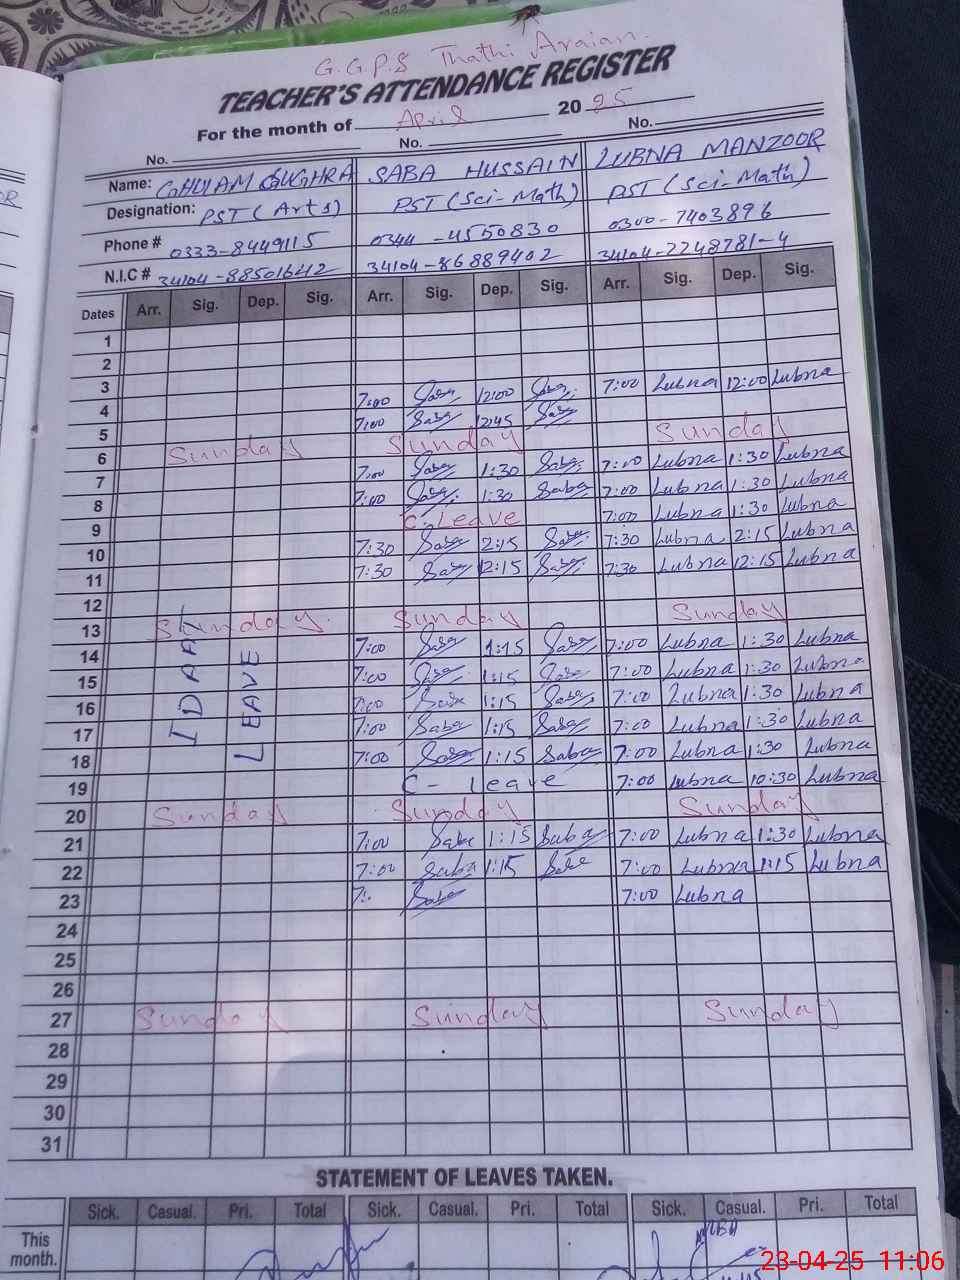 G.G.P.S Thathi Araian.
TEACHER'S ATTENDANCE REGISTER
For the month of April 2025
No. No. No.
Name: GHULAM SUGHRA SABA HUSSAIN LUBNA MANZOOR
Designation: PST (Arts) PST (Sci-Math) PST (Sci-Math)
Phone # 0333-8449115 0344-4550830 0300-7403896
N.I.C # 34104-88501642 34104-86889402 34104-2248781-4
Dates Arr. Sig. Dep. Sig. Arr. Sig. Dep. Sig. Arr. Sig. Dep. Sig.
1
2
3 7:00 Saba 12:00 Saba 7:00 Lubna 12:00 Lubna
4 7:00 Saba 12:45 Saba
5
6 Sunday Sunday Sunday
7 7:00 Saba 1:30 Saba 7:00 Lubna 1:30 Lubna
8 7:00 Saba 1:30 Saba 7:00 Lubna 1:30 Lubna
9 C. Leave 7:00 Lubna 1:30 Lubna
10 7:30 Saba 2:15 Saba 7:30 Lubna 2:15 Lubna
11 7:30 Saba 12:15 Saba 7:30 Lubna 12:15 Lubna
12
13 Sunday Sunday Sunday
IDAAT
LEAVE
14 7:00 Saba 1:15 Saba 7:00 Lubna 1:30 Lubna
15 7:00 Saba 1:15 Saba 7:00 Lubna 1:30 Lubna
16 7:00 Saba 1:15 Saba 7:00 Lubna 1:30 Lubna
17 7:00 Saba 1:15 Saba 7:00 Lubna 1:30 Lubna
18 7:00 Saba 1:15 Saba 7:00 Lubna 1:30 Lubna
19 C- Leave 7:00 Lubna 10:30 Lubna
20 Sunday Sunday Sunday
21 7:00 Saba 1:15 Saba 7:00 Lubna 1:30 Lubna
22 7:00 Saba 1:15 Saba 7:00 Lubna 1:15 Lubna
23 7: Saba 7:00 Lubna
24
25
26
27 Sunday Sunday Sunday
28
29
30
31
STATEMENT OF LEAVES TAKEN.
Sick. Casual. Pri. Total Sick. Casual. Pri. Total Sick. Casual. Pri. Total
This
month.
23-04-25 11:06